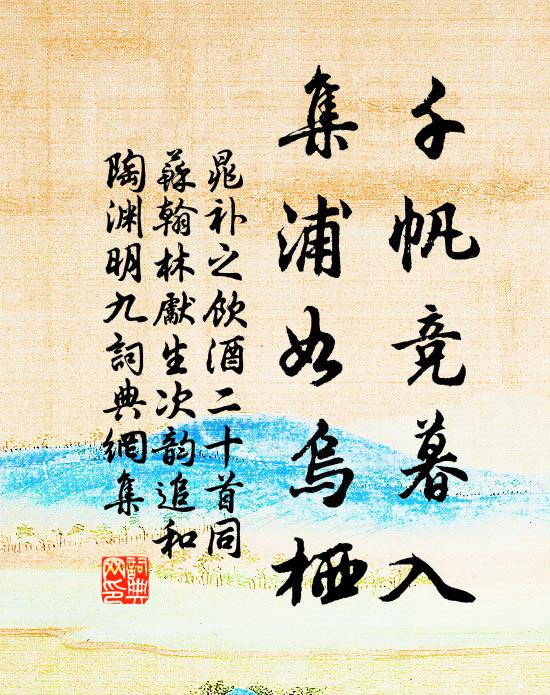 千帆竞暮入
集浦如乌栖
晁补之饮酒二十首同
蘇翰林獻生次韵追和
陶渊明九詞典網集
詞典
网印